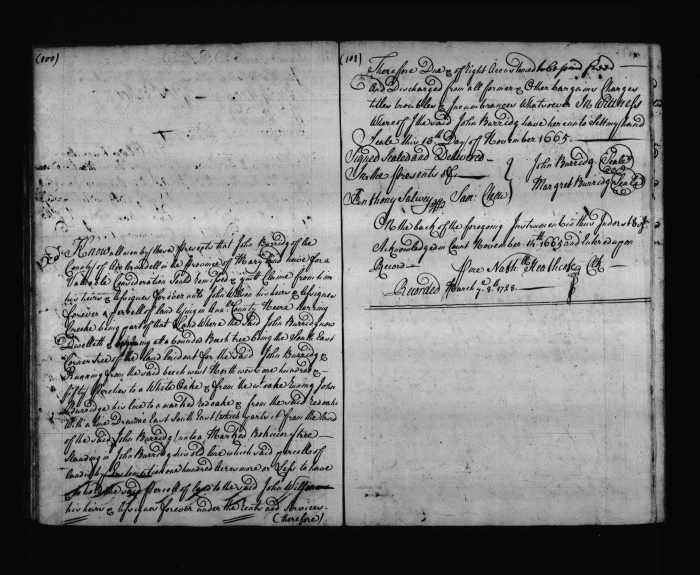 (100)
Know all men by these Presents that John Burridg of the
County of Annarundell in the Province of Maryland have for a
Valluable Consideration Sould remised & quitt Claime from him
his heirs & Assignes forever unto John Wilson his heirs & Assignes
forever a percell of land lying in Ana: County Neere herring
Creeke being part of that Land where the said John Burridg now
Dwelleth & begining at a bounded Beech tree being the South East
Corner tree of the land laid out for the said John Burridg &
Running from the said beech west North west one hundred &
fifty Perches to a White Oake & from the w: oake runing John
Burridge his line to a marked red oake & from the said red oake
With a line drawne East South East (which parts it from the land
of the said John Burridg) unto a Marked
standing in John Burridg his old line which said percell of
land is by one hundred Acres more or Less to have
the said Percell of land to the said John Wilson
his heirs & Assignes forever under the rents and Services
(therefore)
(101)
Therefore Due & of right Accustomed to be paid freed
And Discharged from all former & Other bargaines Charges
titles troubles & Incumbrances Whatsoever In Witness
Where of I the said John Burridg have hereunto Sett my hand
& Seale this 13th Day of November 1665
Signed Sealed and Delivered
In the Presents of
John Burridg (Seale)
Margret Burridg (Seale)
Anthony Salwey Sam: Chew
On the back of the foregoing Instrument is thus Indorst &c
Acknowledged in Court November 14th 1665 and Entered upon
Record
me Nath: Heathcote Clk
Recorded March 7. 1728